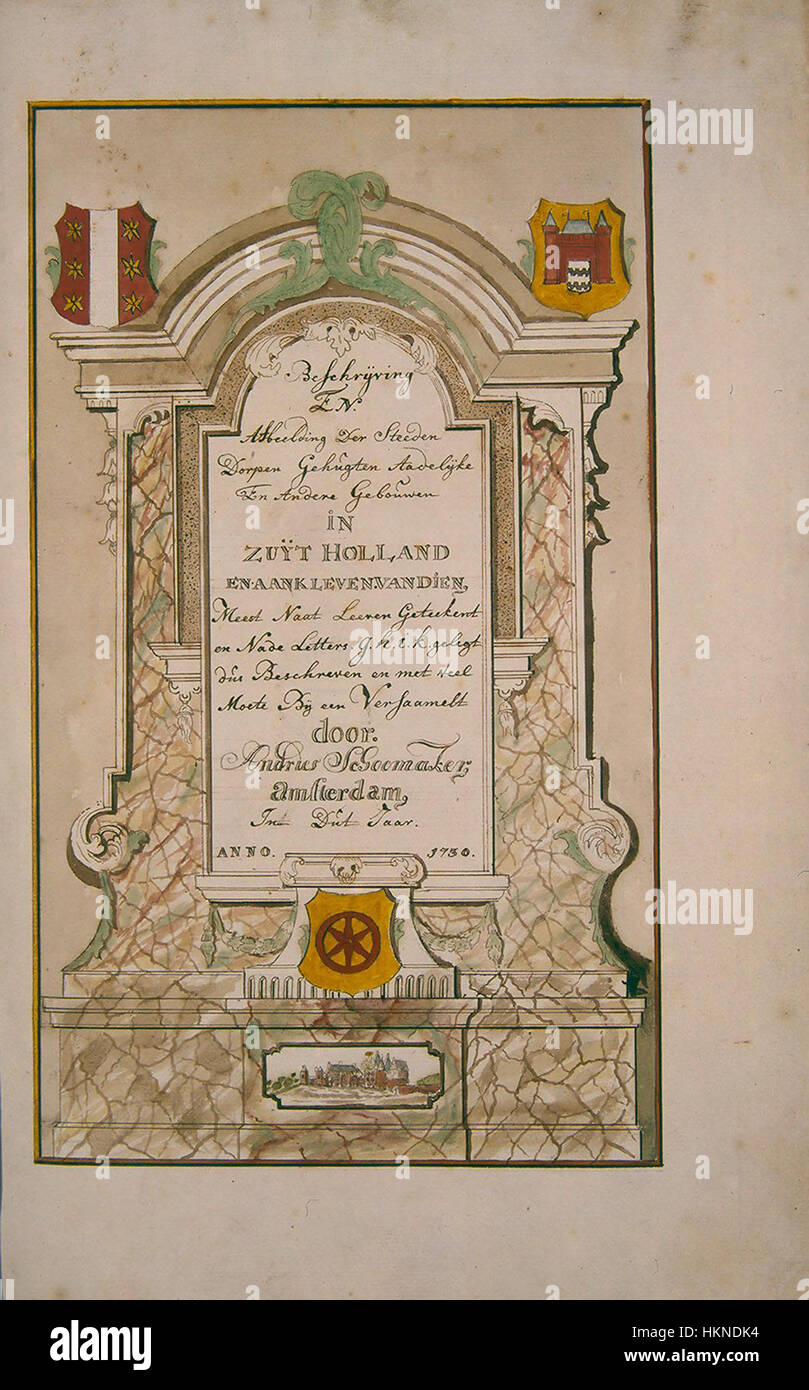 Beschrijving
EN.
Afbeelding Der Steeden
Dorpen Gehugten Aadelijke
En Andere Gebouwen
in
ZUŸT HOLLAND
EN·AANKLEVEN·VAN DIEN,
Meest Naat Leeven Geteekent
en Nade Letters. g. h. i. k. gelegt
dus Beschreven en met veel
Moete Bij een Versaamelt
door.
Andries Schoemaker,
amsterdam,
In Dut Jaar.
ANNO. 1730.
alamy stock photo
Image ID: HKNDK4
www.alamy.com